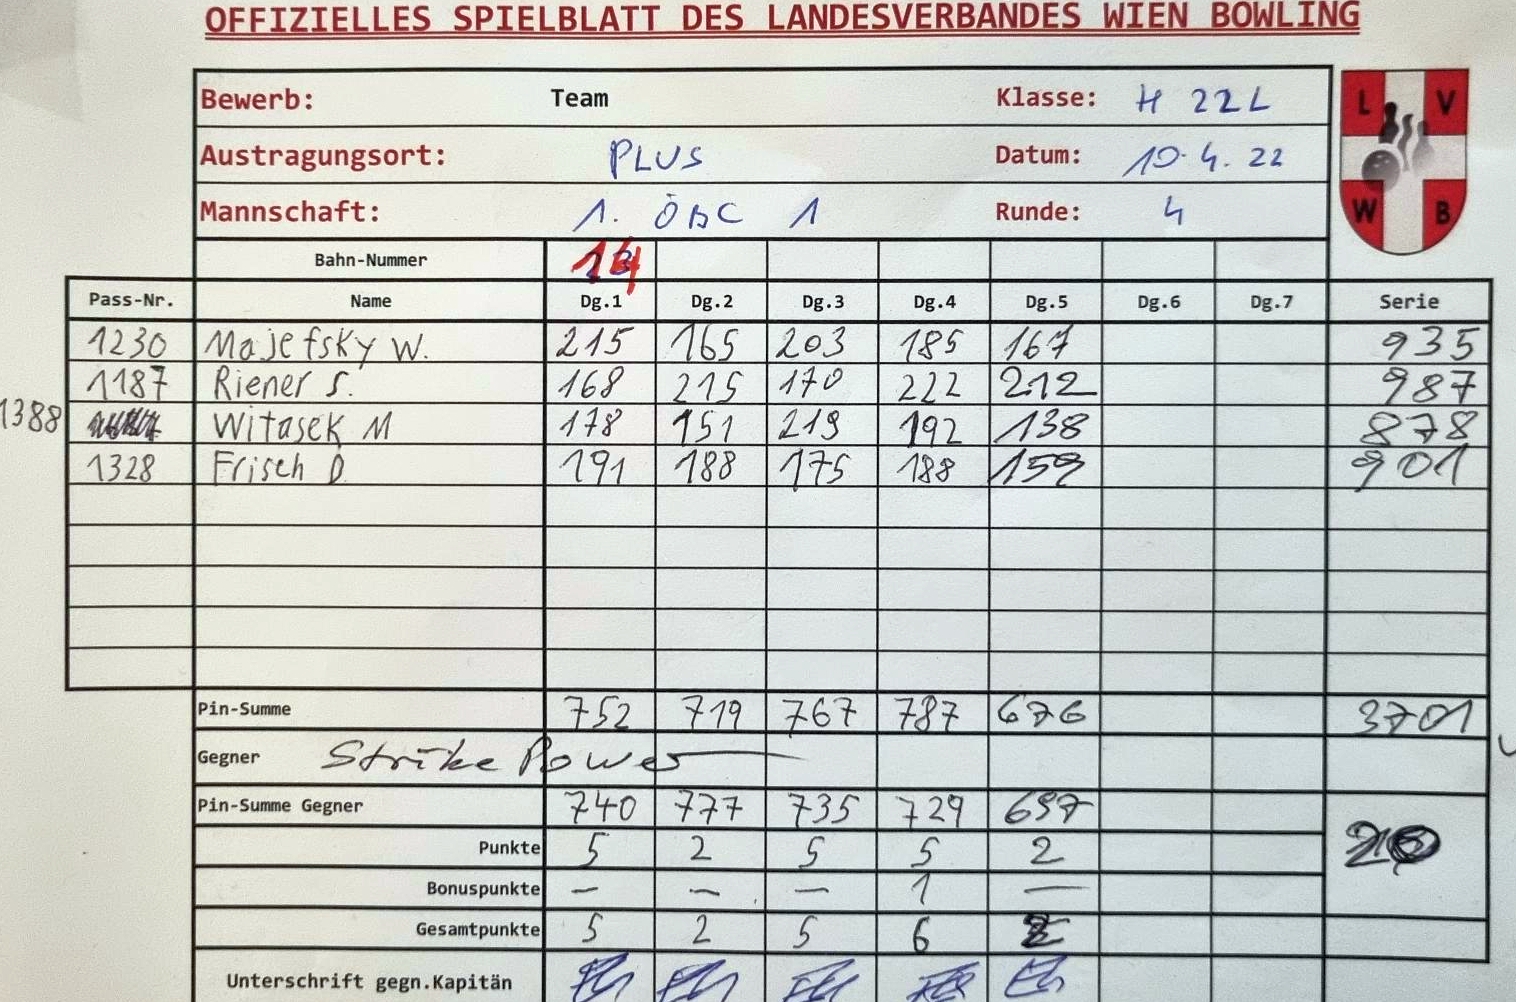 OFFIZIELLES SPIELBLATT DES LANDESVERBANDES WIEN BOWLING
Bewerb: Team Klasse: H 22L
Austragungsort: PLUS Datum: 10.4.22
Mannschaft: 1. ÖBC 1 Runde: 4
L V
W B
Bahn-Nummer
Pass-Nr. Name Dg.1 Dg.2 Dg.3 Dg.4 Dg.5 Dg.6 Dg.7 Serie
1230 Majefsky W. 215 165 203 185 167 935
1187 Riener S. 168 215 170 222 212 987
1388 Witasek M 178 151 219 192 138 878
1328 Frisch D. 191 188 175 188 159 901
Pin-Summe 752 719 767 787 676 3701
Gegner Strike Power
Pin-Summe Gegner 740 777 735 729 697
Punkte 5 2 5 5 2
Bonuspunkte – – – 1 –
Gesamtpunkte 5 2 5 6 2
Unterschrift gegn.Kapitän